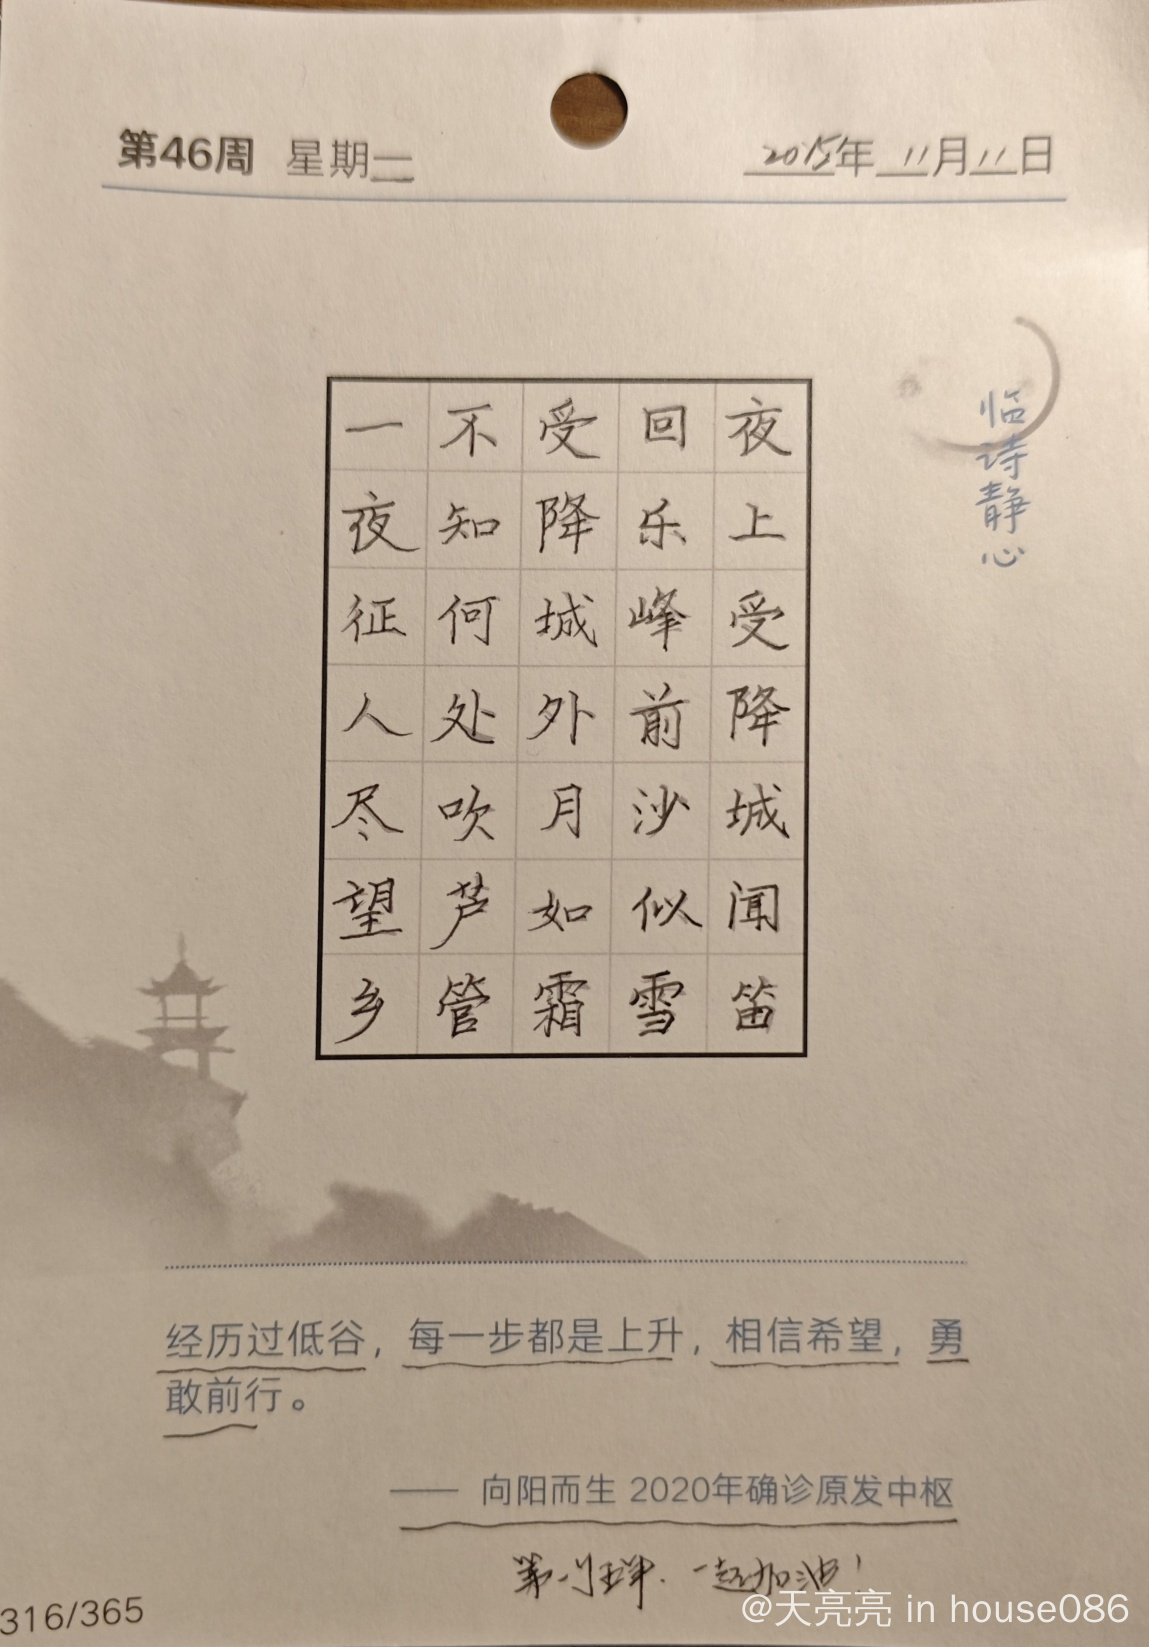 第46周 星期二
2015年11月11日
临诗静心
夜上受降城闻笛
回乐峰前沙似雪
受降城外月如霜
不知何处吹芦管
一夜征人尽望乡
经历过低谷，每一步都是上升，相信希望，勇
敢前行。
—— 向阳而生 2020年确诊原发中枢
一起加油！
316/365
@天亮亮 in house086